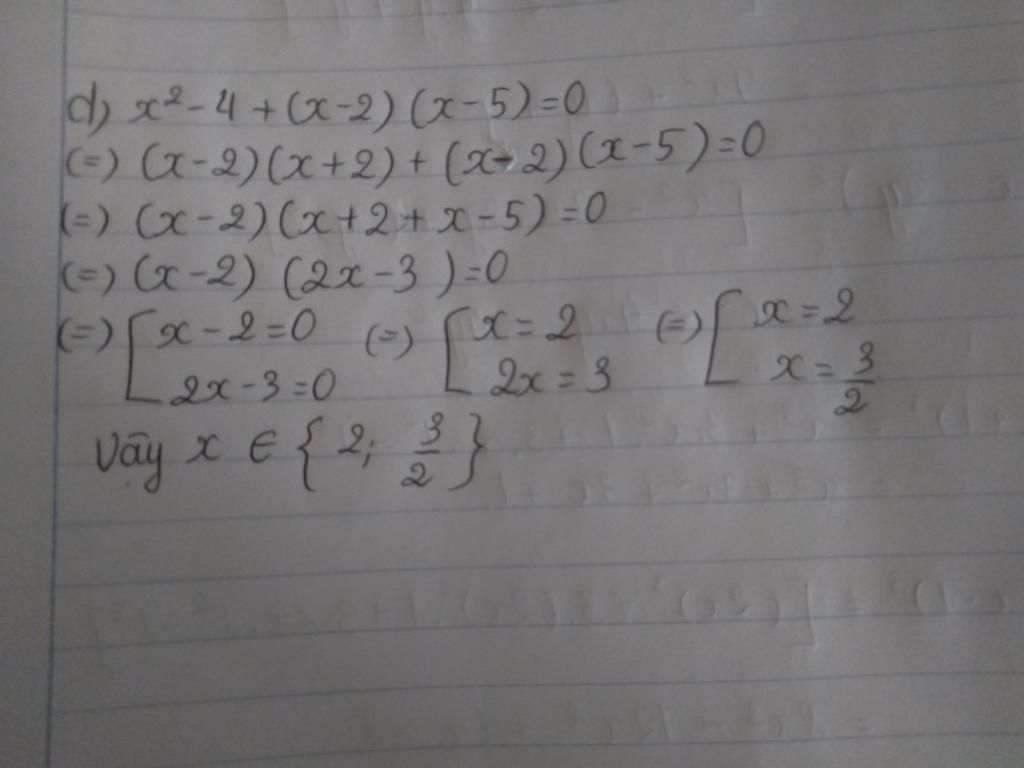 d) x² - 4 + (x-2) (x-5) = 0
(=) (x-2)(x+2) + (x-2)(x-5) = 0
(=) (x-2)(x+2+x-5) = 0
(=) (x-2) (2x-3) = 0
(=) [ x-2=0 (=) [ x=2 (=) [ x=2
2x-3=0 2x=3 x=3/2
Vậy x ∈ {2; 3/2}